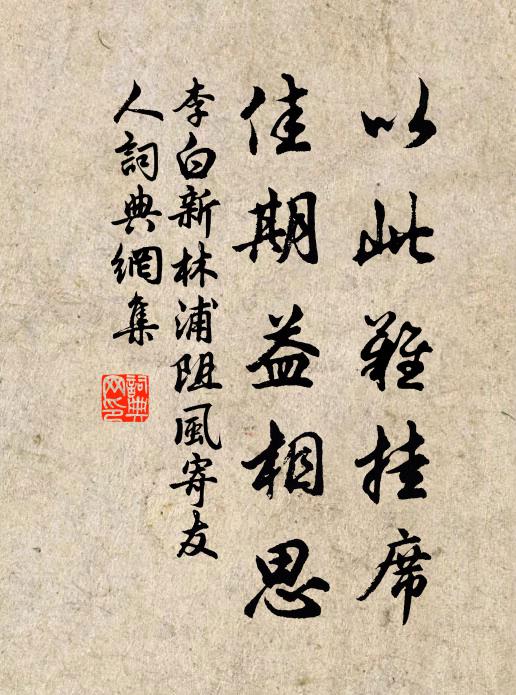 以此難挂席
佳期益相思
李白新林浦阻風寄友
人詞典網集
詞典
网印